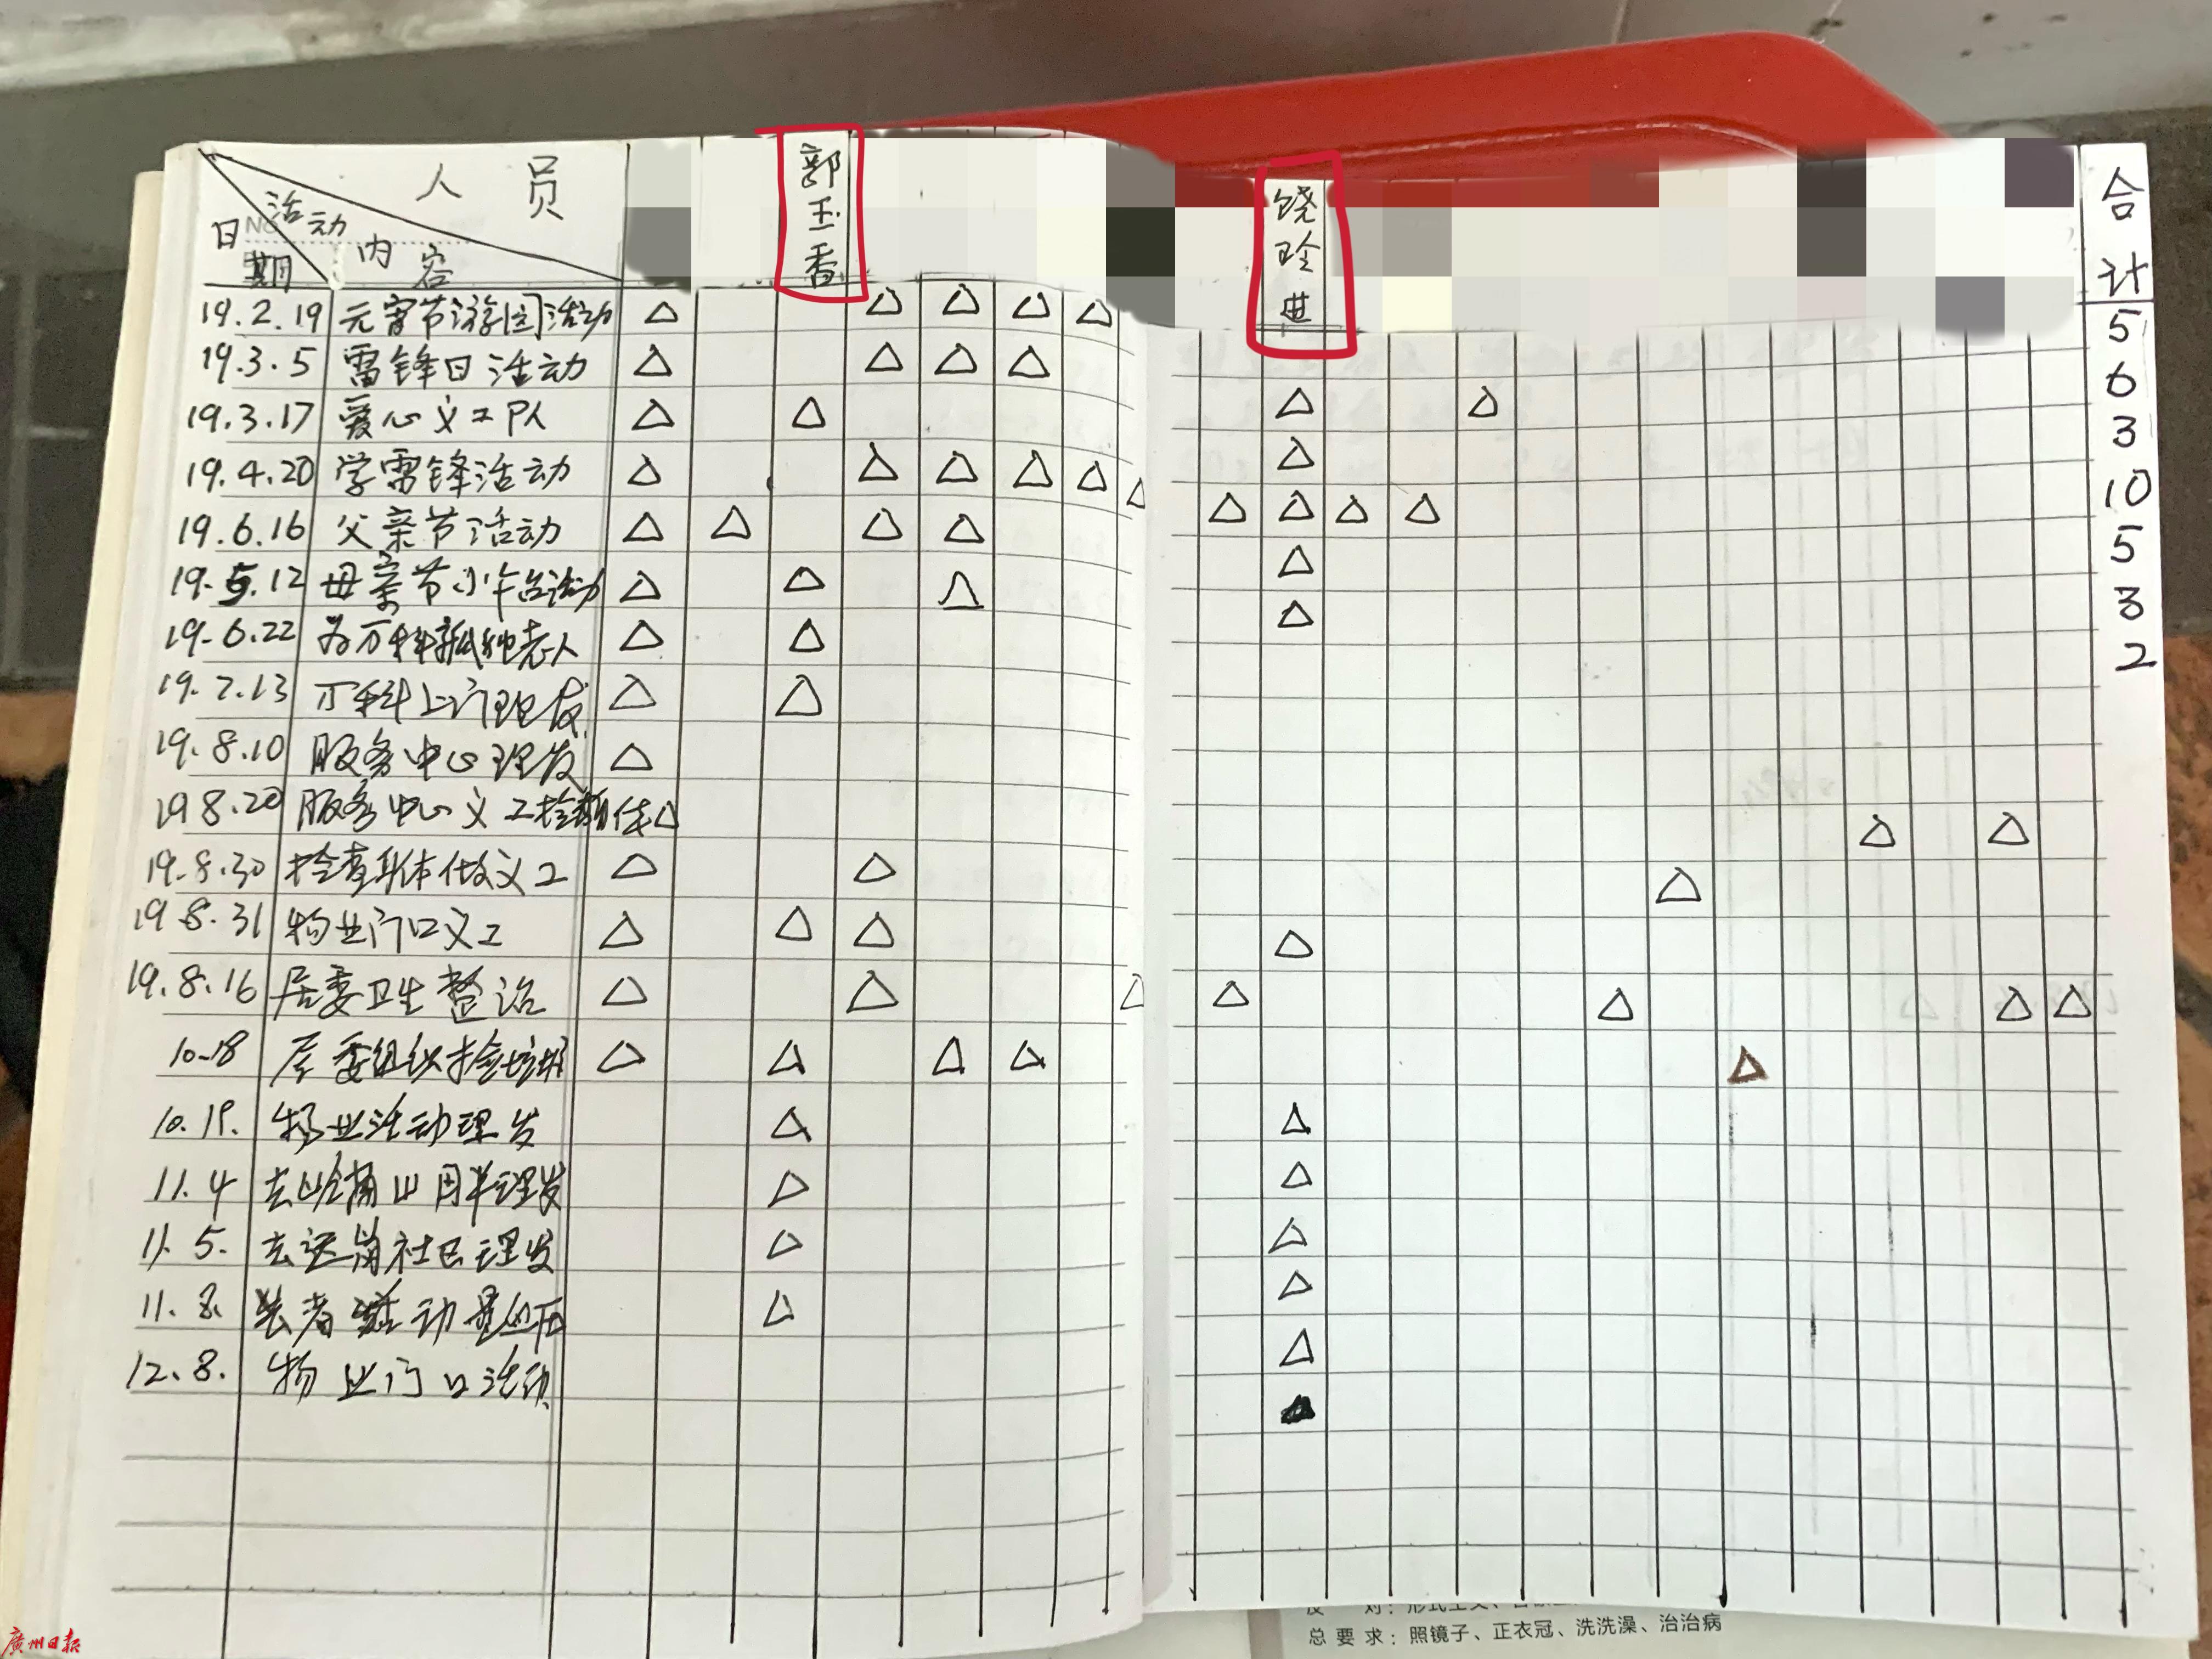 人员
活动
日期
内容
郭玉香
饶玲进
合计
19.2.19 元宵节游园活动 5
19.3.5 雷锋日活动 6
19.3.17 爱心义工队 3
19.4.20 学雷锋活动 10
19.6.16 父亲节活动 5
19.5.12 母亲节小年台活动 3
19.6.22 为万科孤独老人 2
19.7.13 万科上门理发
19.8.10 服务中心理发
19 8.20 服务中心义工
19.8.30 检查身体做义工
19.8.31 物业门口义工
19.8.16 居委卫生整治
10.18 居委组织
10.19. 物业活动理发
11.4 理发
11.5. 去运角社区理发
11.8. 活动量血压
12.8. 物业门口活动
总要求：照镜子、正衣冠、洗洗澡、治治病
廣州日报